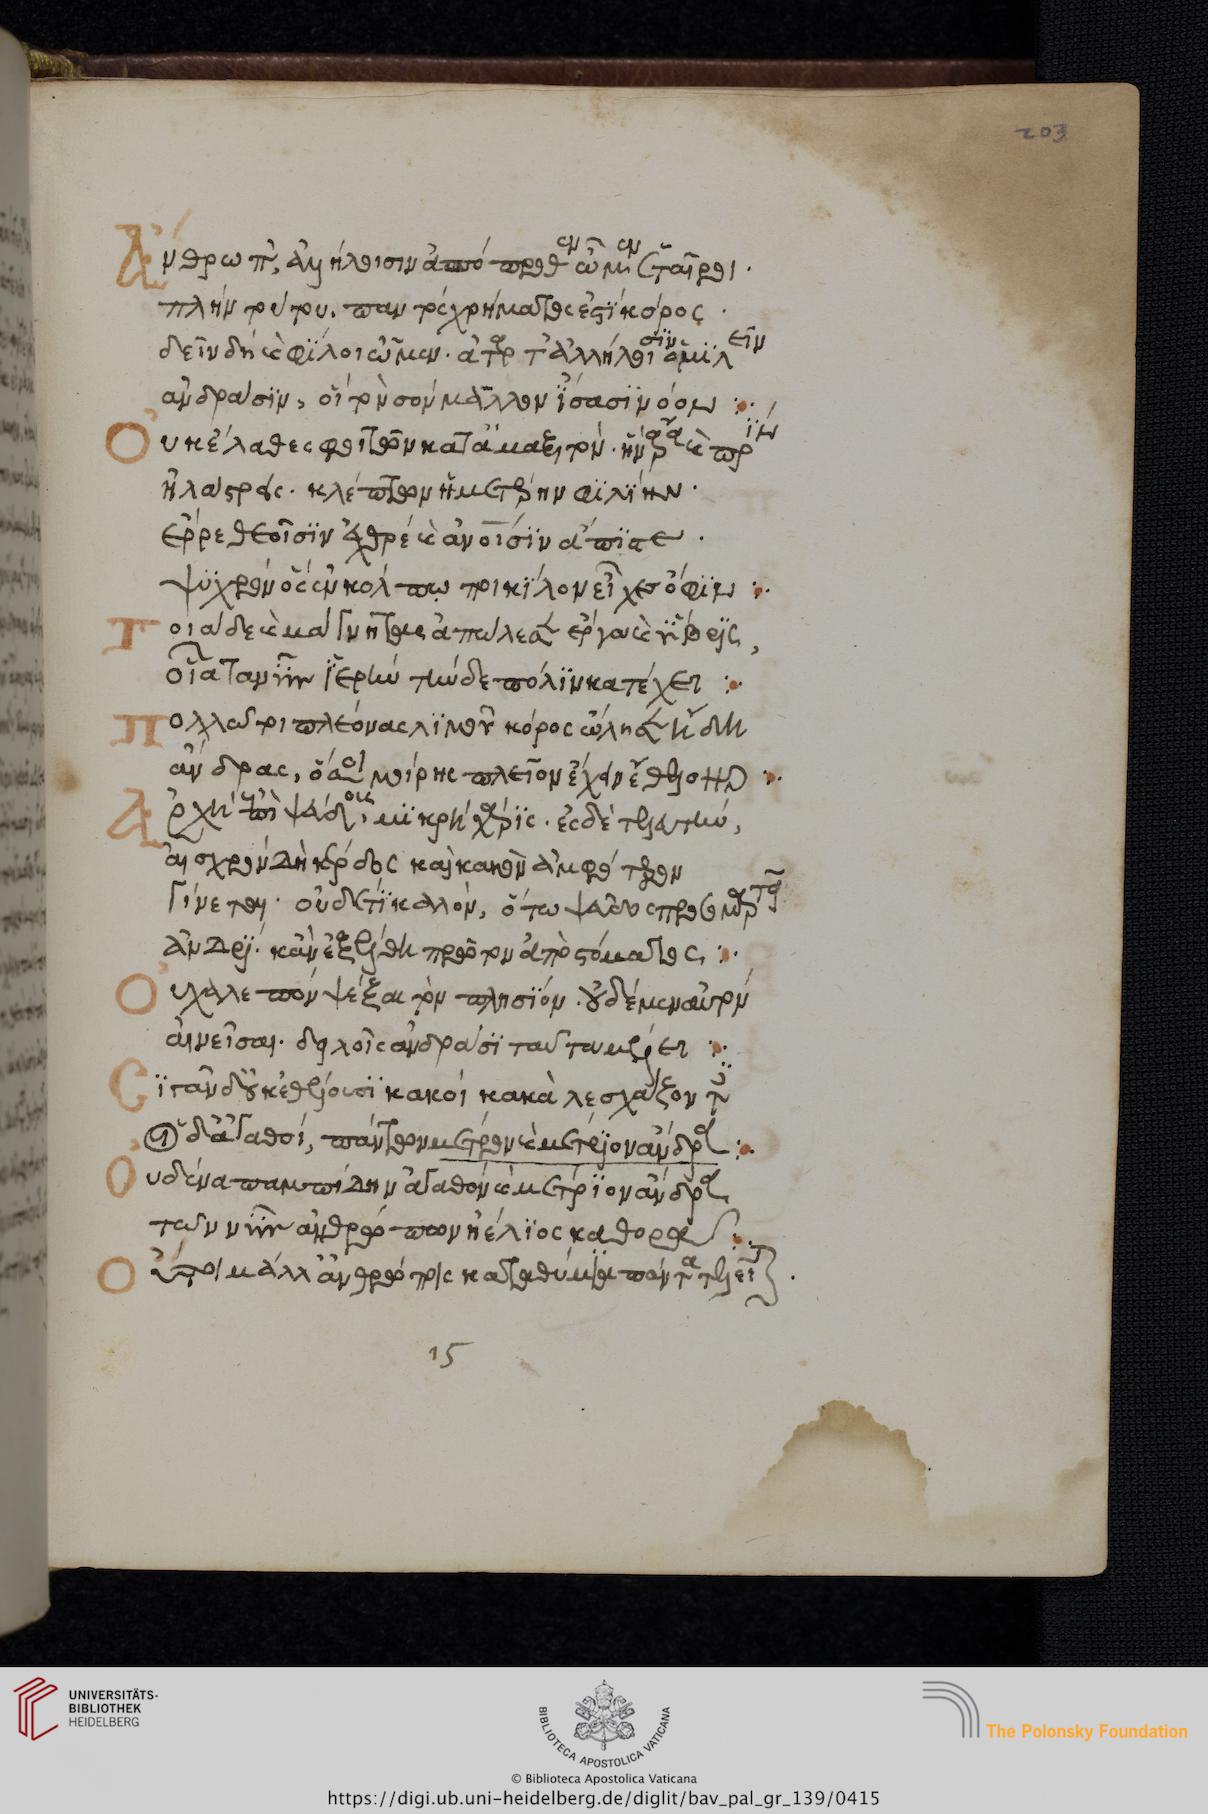 203
Ἄνθρωπ', ἀλλήλοισιν ἀπόπροθεν ὦμεν ἑταῖροι·
πλὴν τούτου, παντὸς χρήματος ἐστὶ κόρος·
δεῖν δὴ καὶ φίλοι ὦμεν· ἀτάρ τ' ἀλλήλοισιν ὁμιλεῖν
ἀνδράσιν, οἳ τὸν σὸν μᾶλλον ἴσασι νόον :
Οὐκ ἔλαθες φοιτῶν κατ' ἀμαξιτόν· ἣν ἄρα καὶ πρίν
ἠλάστρεις· κλέπτων ἡμετέρην φιλίην·
ἔρρε θεοῖσιν ἐχθρέ καὶ ἀνοισιν ἄπιστε·
ψυχρὸν ὃς ἐν κόλπῳ ποικίλον εἶχες ὄφιν :
Τοιάδε καὶ μάγνητας ἀπώλεσεν ἔργα καὶ ὕβρις,
οἷα τὰ νῦν ἱερὴν τήνδε πόλιν κατέχει :
Πολλῶν τοι πλέονας λιμοῦ κόρος ὤλησεν ἤδη
ἄνδρας, ὅσοι μοίρης πλεῖον ἔχειν ἔθελον :
Ἀρχὴ ἐπὶ ψεύδους, μικρὴ χάρις· ἐς δὲ τελευτήν,
αἰσχρὸν δὴ κέρδος καὶ κακὸν ἀμφότερον
γίνεται· οὐδέ τι καλόν, ὅτῳ ψεῦδος προσομαρτῇ
ἀνδρί· κἂν ἐξέλθῃ πρῶτον ἀπὸ στόματος :
Οὐ χαλεπὸν ψέξαι τὸν πλησίον· οὐδὲ μὲν αὐτόν
αἰνεῖσαι· δηλοῖς ἀνδράσι ταῦτα μέλει :
Σιγᾶν δ' οὐκ ἐθέλουσι κακοί κακὰ λεσχάζοντες
οἱ δ' ἀγαθοί, πάντων μέτρον καὶ μέτριον ἄνδρα :
Οὐδένα παμπήδην ἀγαθὸν καὶ μέτριον ἄνδρα
τῶν νῦν ἀνθρώπων ἠέλιος καθορᾷ :
Οὔτοι μάλλ' ἀνθρώποις καταθύμια πάντα τελεῖται.
15
UNIVERSITÄTS-
BIBLIOTHEK
HEIDELBERG
BIBLIOTECA APOSTOLICA VATICANA
The Polonsky Foundation
© Biblioteca Apostolica Vaticana
https://digi.ub.uni-heidelberg.de/diglit/bav_pal_gr_139/0415